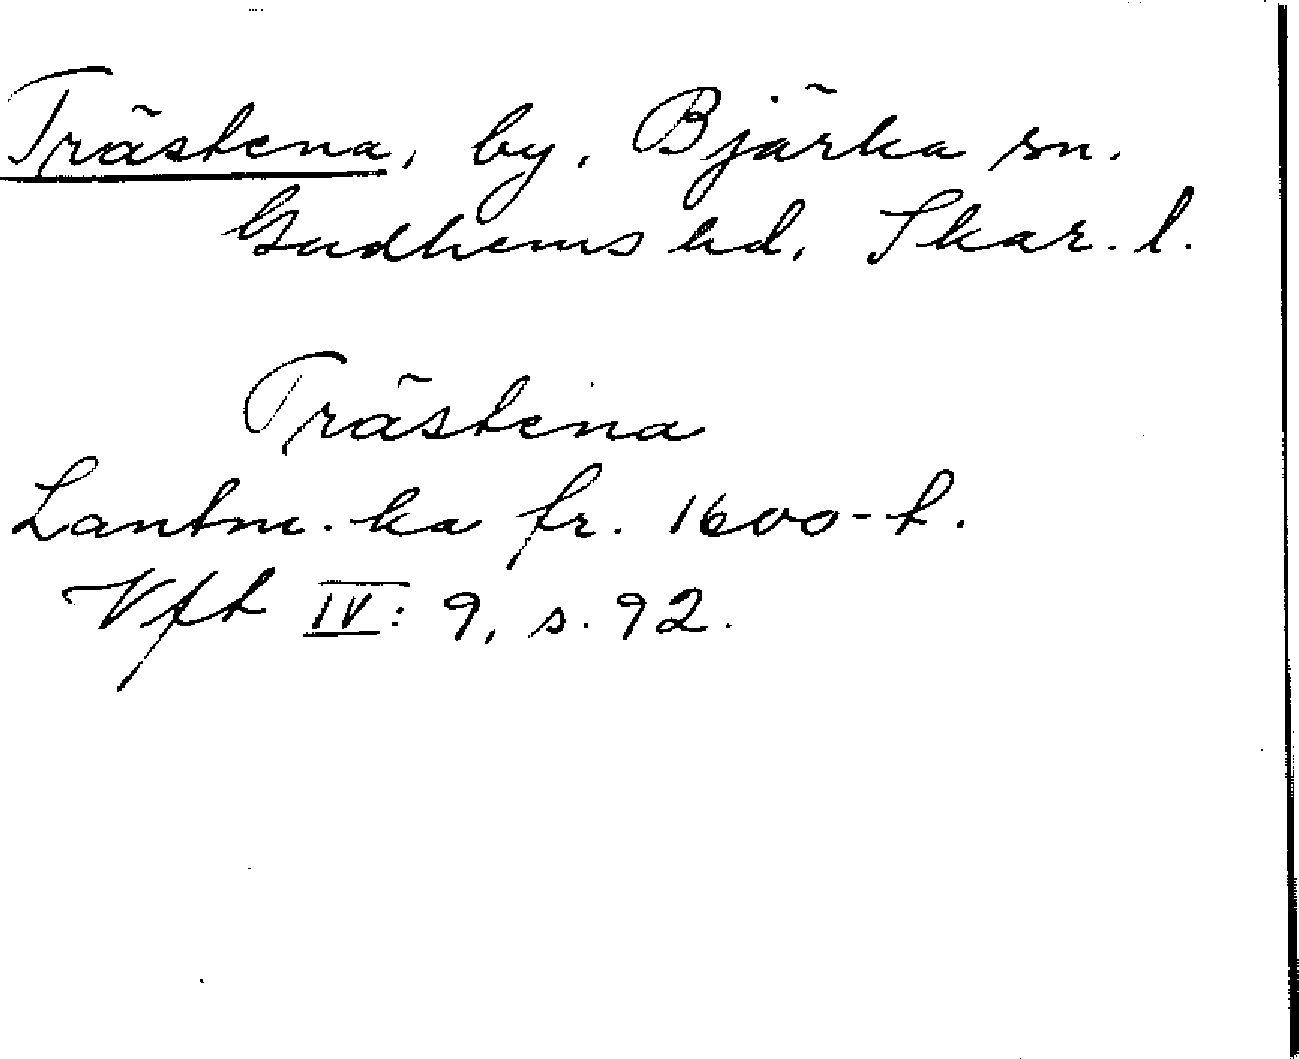 Trästena, by, Bjärka sn.
Gudhems hd, Skar. l.
Trästena
Lantm. ka fr. 1600-t.
Vft IV: 9, s. 92.